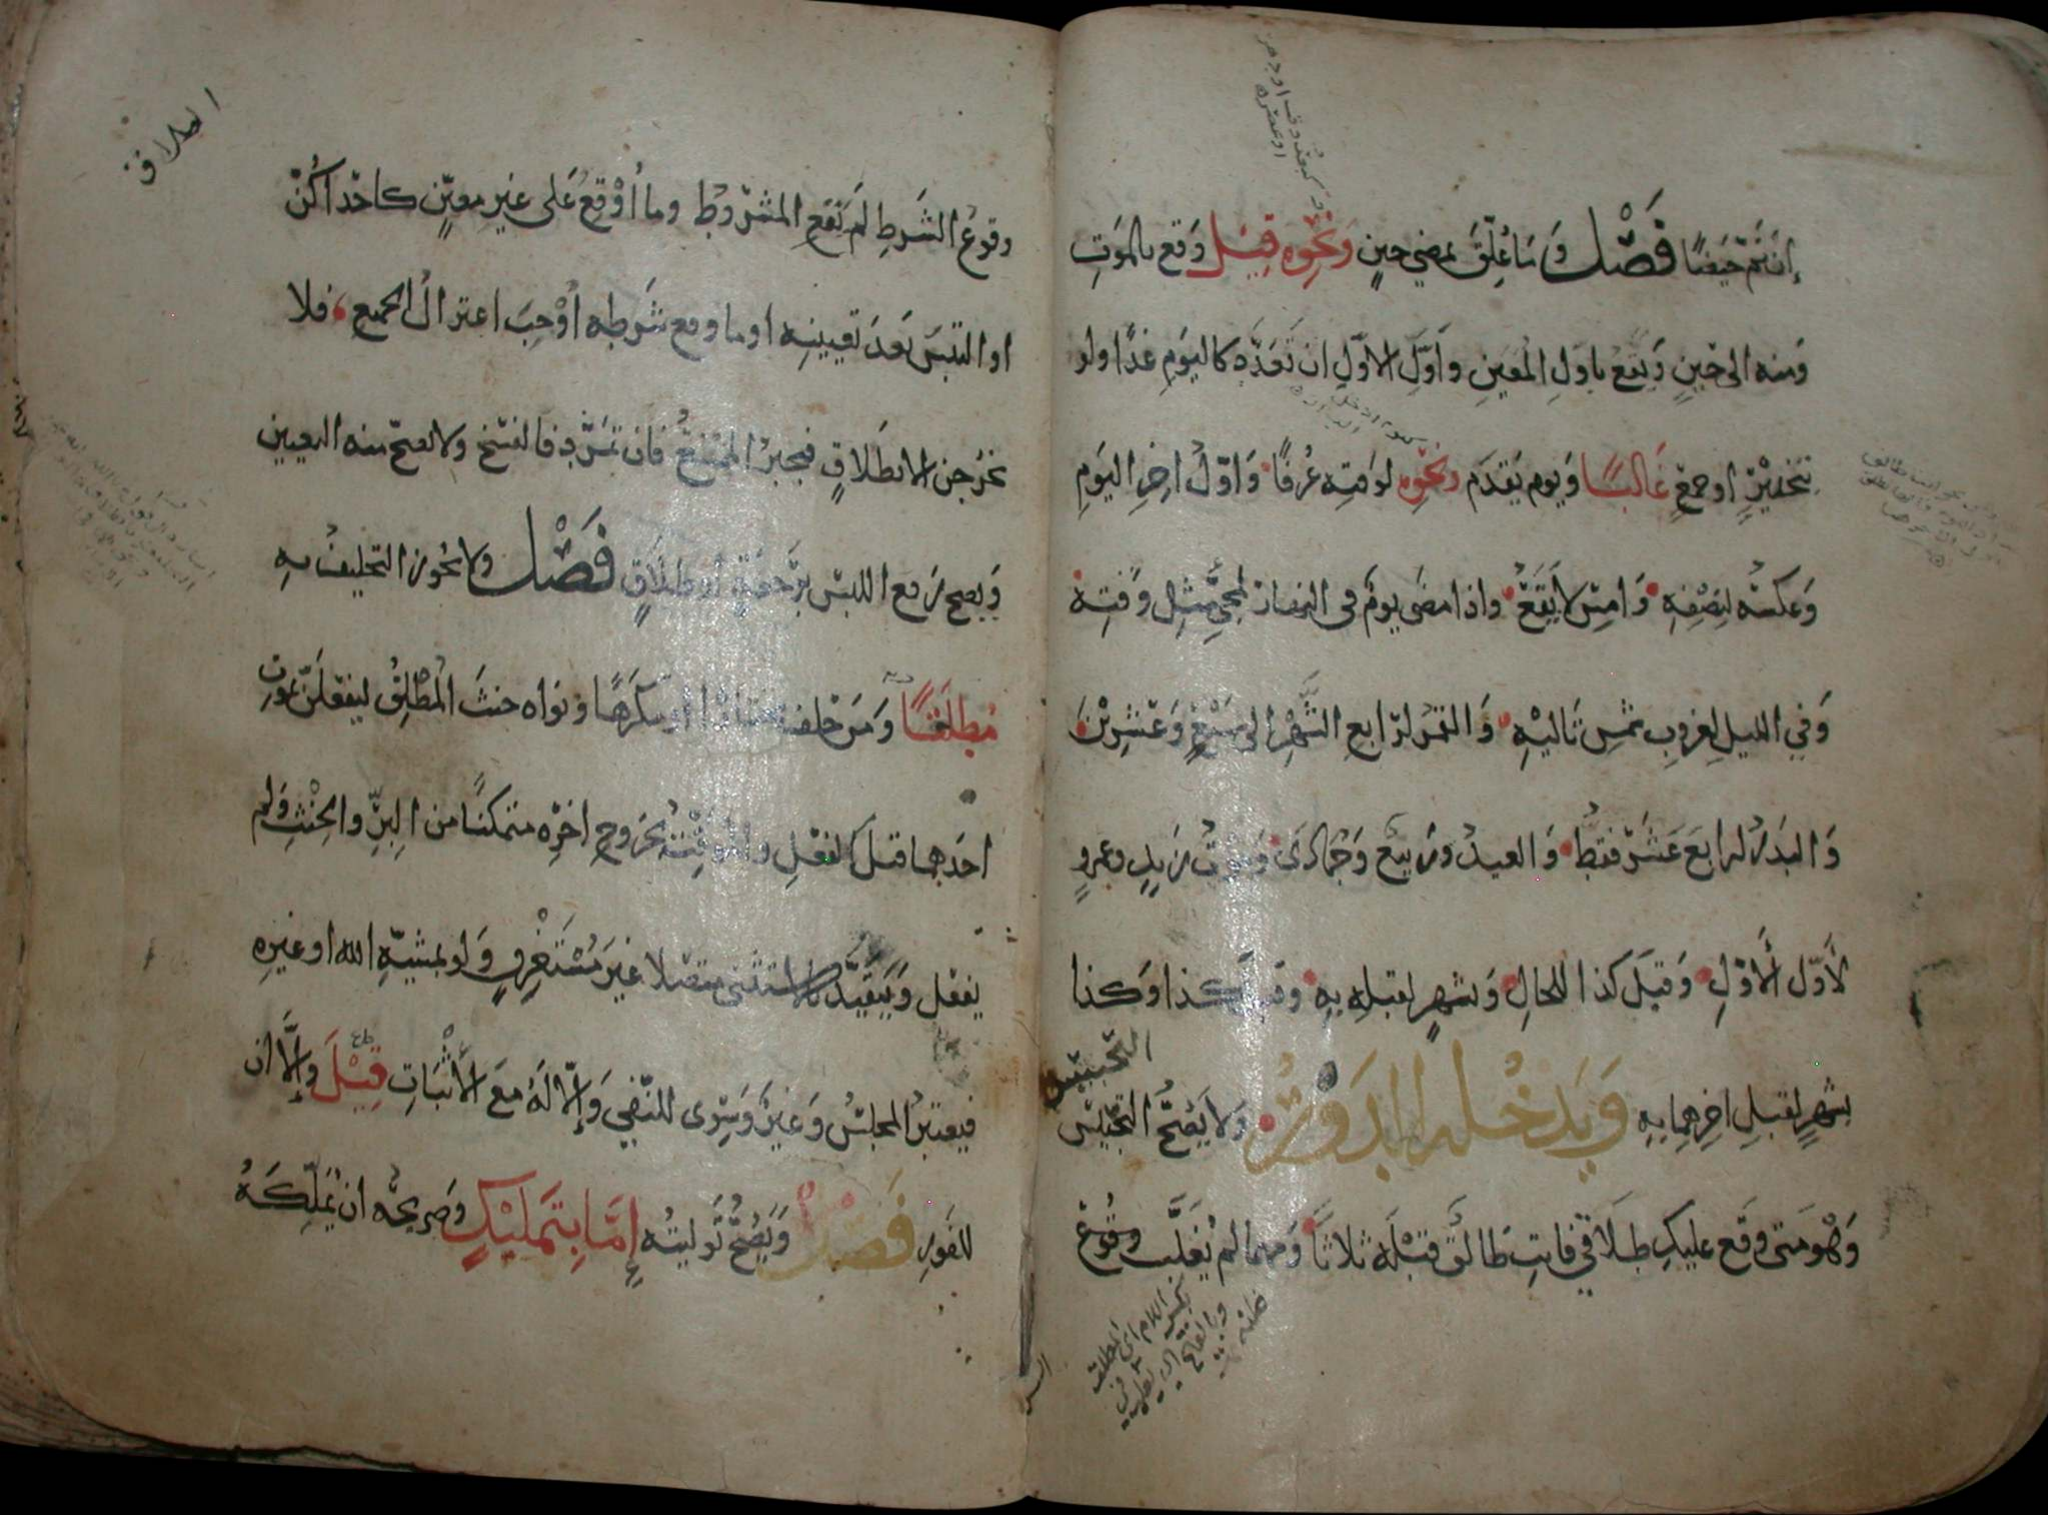 إن تم حيضا فصل وما علق بمضي حين ونحوه قيل وقع بالموت
ومنه الى حين ويقع باول المعين واول الاول ان تعدد كاليوم غدا ولو
بتخيير او جمع غالبا ويوم يقدم ونحوه لوقته عرفا واول اخر اليوم
وعكسه لنصفه وامس لا يقع واذا مضى يوم في النهار لمجي مثل وقته
وفي الليل لغروب شمس تاليه والقمر لرابع الشهر الى سبع وعشرين
والبدر لرابع عشر فقط والعيد وربيع وجمادى وموت زيد وعمرو
لأول الأول وقبل كذا للحال وبشهر لقبله به وقبل كذا وكذا
بشهر لقبل اخرهما به ويدخله الدور ولا يصح التحبيس
التحبيس
وهو متى وقع عليك طلاقي فانت طالق قبله ثلاثا ومهما لم يغلب وقوع
بكسر اللام اي المطلقه
الطلاق
وقوع الشرط لم يقع المشروط وما أوقع على غير معين كاحداكن
او التبس بعد تعيينه او ما وقع شرطه أوجب اعتزال الجميع فلا
يخرجن الا بطلاق فيجبر الممتنع فان تمرد فالفسخ ولا يصح منه التعيين
ويصح رفع اللبس برجعة او طلاق فصل ولا يجوز التحليف به
مطلقا ومن حلف مختارا او مكرها ونواه حنث المطلق ليفعلن بموت
احدهما قبل الفعل والموقت بخروج اخره متمكنا من البر والحنث ولم
يفعل ويتقيد بالاستثنى متصلا غير مستغرق ولو بمشية الله او غيره
فيعتبر المجلس وغير وسوى للنفي وإلا له مع الأثبات قيل وإلا ان
للفور فصل ويصح توليته إما بتمليك وصريحه ان يملكه